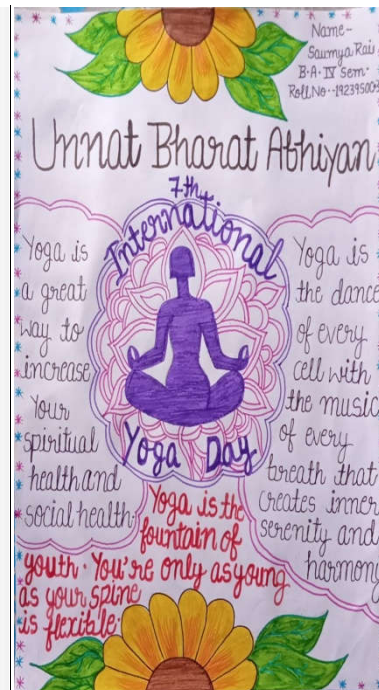 Name-
Saumya Rai
B.A. IV Sem.
Roll.No.-
Unnat Bharat Abhiyan
7th
International
Yoga Day
Yoga is
a great
way to
increase
Your
spiritual
health and
social health.
Yoga is
the dance
of every
cell with
the music
of every
breath that
creates inner
serenity and
harmony
Yoga is the
fountain of
youth. You're only as young
as your spine
is flexible.